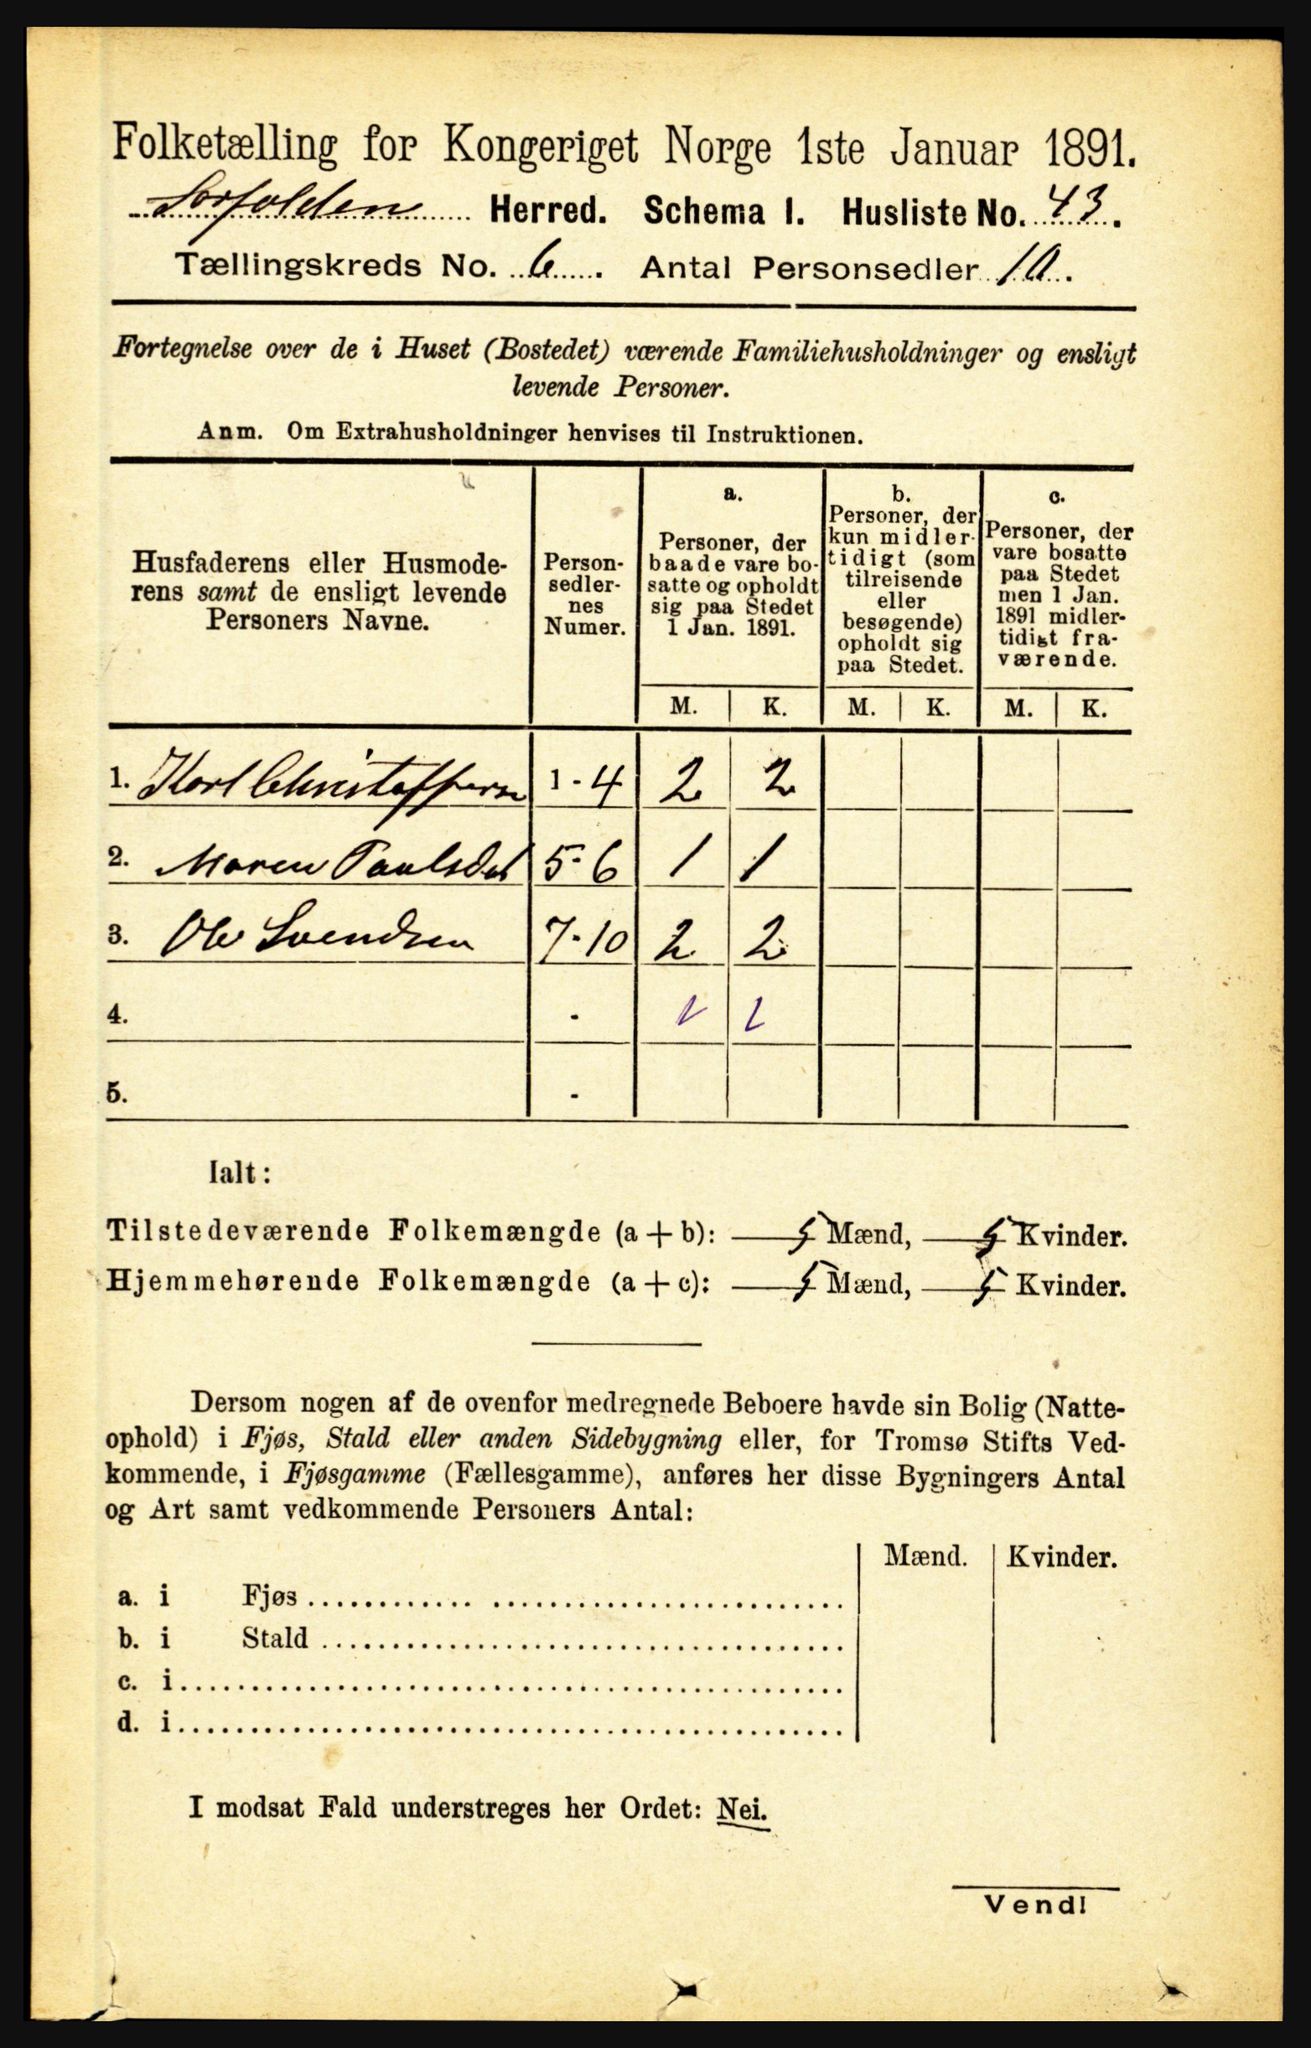 Folketælling for Kongeriget Norge 1ste Januar 1891.
Sørfolden Herred. Schema I. Husliste No. 43.
Tællingskreds No. 6. Antal Personsedler 10.
Fortegnelse over de i Huset (Bostedet) værende Familiehusholdninger og ensligt
levende Personer.
Anm. Om Extrahusholdninger henvises til Instruktionen.
Husfaderens eller Husmode-
rens samt de ensligt levende
Personers Navne.
Person-
sedler-
nes
Numer.
a.
Personer, der
baade vare bo-
satte og opholdt
sig paa Stedet
1 Jan. 1891.
b.
Personer, der
kun midler-
tidigt (som
tilreisende
eller
besøgende)
opholdt sig
paa Stedet.
c.
Personer, der
vare bosatte
paa Stedet
men 1 Jan.
1891 midler-
tidigt fra-
værende.
M. K. M. K. M. K.
1. Karl Christoffersen 1-4 2 2
2. Maren Paulsdat 5-6 1 1
3. Ole Svendsen 7-10 2 2
4. - 1 1
5. -
Ialt:
Tilstedeværende Folkemængde (a + b): 5 Mænd, 5 Kvinder.
Hjemmehørende Folkemængde (a + c): 5 Mænd, 5 Kvinder.
Dersom nogen af de ovenfor medregnede Beboere havde sin Bolig (Natte-
ophold) i Fjøs, Stald eller anden Sidebygning eller, for Tromsø Stifts Ved-
kommende, i Fjøsgamme (Fællesgamme), anføres her disse Bygningers Antal
og Art samt vedkommende Personers Antal:
Mænd. Kvinder.
a. i Fjøs
b. i Stald
c. i
d. i
I modsat Fald understreges her Ordet: Nei.
Vend!